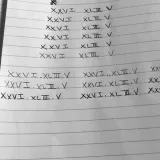 XXVI XLIII V
XXVI XLIII V
XXVI XLIII V
XXVI XLIII V
XXVI XLIII V
XXVI. XLIII. V XXVI. XLIII. V
XXVI. XLIII. V XXVI.. XLIII. V
XXVI. XLIII. V XXVI.. XLIII. V